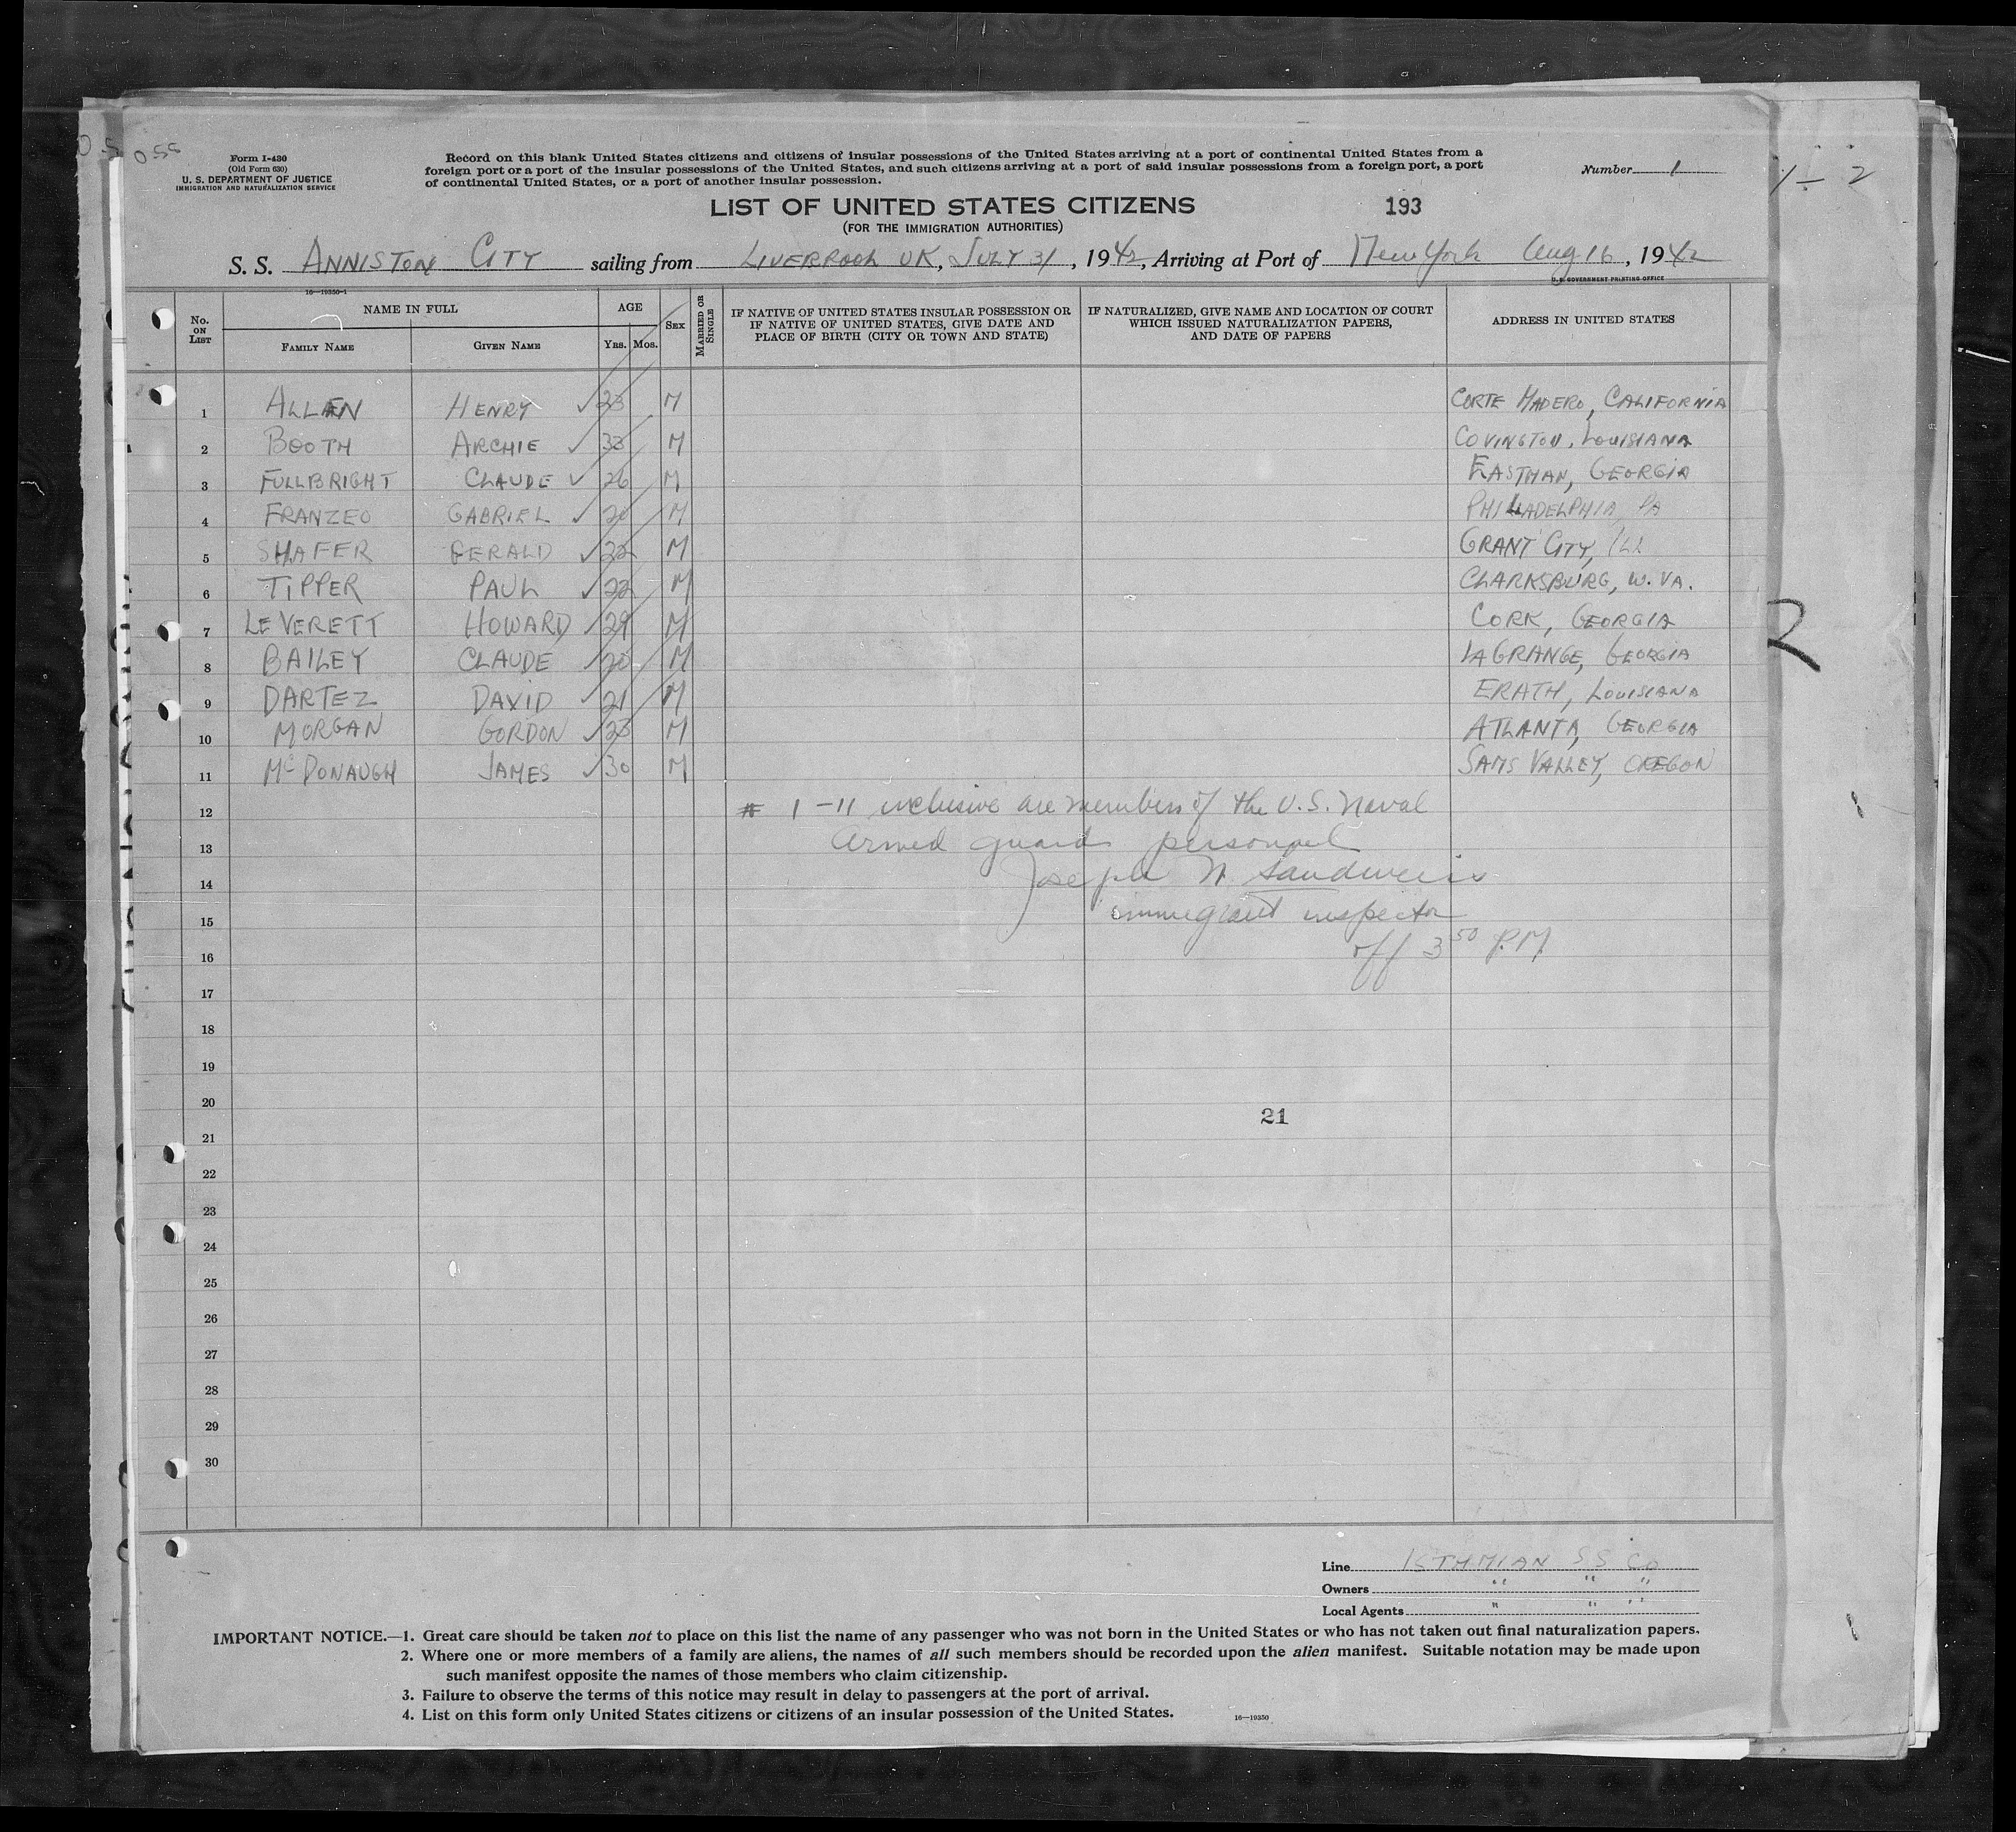 055
Form I-430
(Old Form 630)
U. S. DEPARTMENT OF JUSTICE
IMMIGRATION AND NATURALIZATION SERVICE
Record on this blank United States citizens and citizens of insular possessions of the United States arriving at a port of continental United States from a
foreign port or a port of the insular possessions of the United States, and such citizens arriving at a port of said insular possessions from a foreign port, a port
of continental United States, or a port of another insular possession.
Number 1
1 - 2
LIST OF UNITED STATES CITIZENS
193
(FOR THE IMMIGRATION AUTHORITIES)
S. S. ANNISTON CITY sailing from LIVERPOOL UK, JULY 31, 1942, Arriving at Port of New York Aug 16, 1942
16—19350-1
U. S. GOVERNMENT PRINTING OFFICE
No. ON LIST
NAME IN FULL
FAMILY NAME
GIVEN NAME
AGE
YRS. MOS.
SEX
MARRIED OR SINGLE
IF NATIVE OF UNITED STATES INSULAR POSSESSION OR
IF NATIVE OF UNITED STATES, GIVE DATE AND
PLACE OF BIRTH (CITY OR TOWN AND STATE)
IF NATURALIZED, GIVE NAME AND LOCATION OF COURT
WHICH ISSUED NATURALIZATION PAPERS,
AND DATE OF PAPERS
ADDRESS IN UNITED STATES
1 ALLEN HENRY ✓ 23 M CORTE MADERO, CALIFORNIA
2 BOOTH ARCHIE ✓ 33 M COVINGTON, LOUISIANA
3 FULLBRIGHT CLAUDE ✓ 26 M EASTMAN, GEORGIA
4 FRANZEO GABRIEL ✓ 20 M PHILADELPHIA, PA
5 SHAFER GERALD ✓ 22 M GRANT CITY, ILL
6 TIPPER PAUL ✓ 22 M CLARKSBURG, W. VA.
7 LEVERETT HOWARD ✓ 29 M CORK, GEORGIA
8 BAILEY CLAUDE ✓ 20 M LAGRANGE, GEORGIA
9 DARTEZ DAVID ✓ 21 M ERATH, LOUISIANA
10 MORGAN GORDON ✓ 23 M ATLANTA, GEORGIA
11 McDONAUGH JAMES ✓ 30 M SAMS VALLEY, OREGON
2
12 # 1-11 inclusive are members of the U.S. Naval
13 armed guards personnel
14 Joseph N. Sandweiss
15 immigrant inspector
16 off 3 50 P.M.
17
18
19
20
21
21
22
23
24
25
26
27
28
29
30
Line ISTHMIAN SS CO
Owners " " "
Local Agents " " "
IMPORTANT NOTICE.—1. Great care should be taken not to place on this list the name of any passenger who was not born in the United States or who has not taken out final naturalization papers.
2. Where one or more members of a family are aliens, the names of all such members should be recorded upon the alien manifest. Suitable notation may be made upon
such manifest opposite the names of those members who claim citizenship.
3. Failure to observe the terms of this notice may result in delay to passengers at the port of arrival.
4. List on this form only United States citizens or citizens of an insular possession of the United States.
16—19350